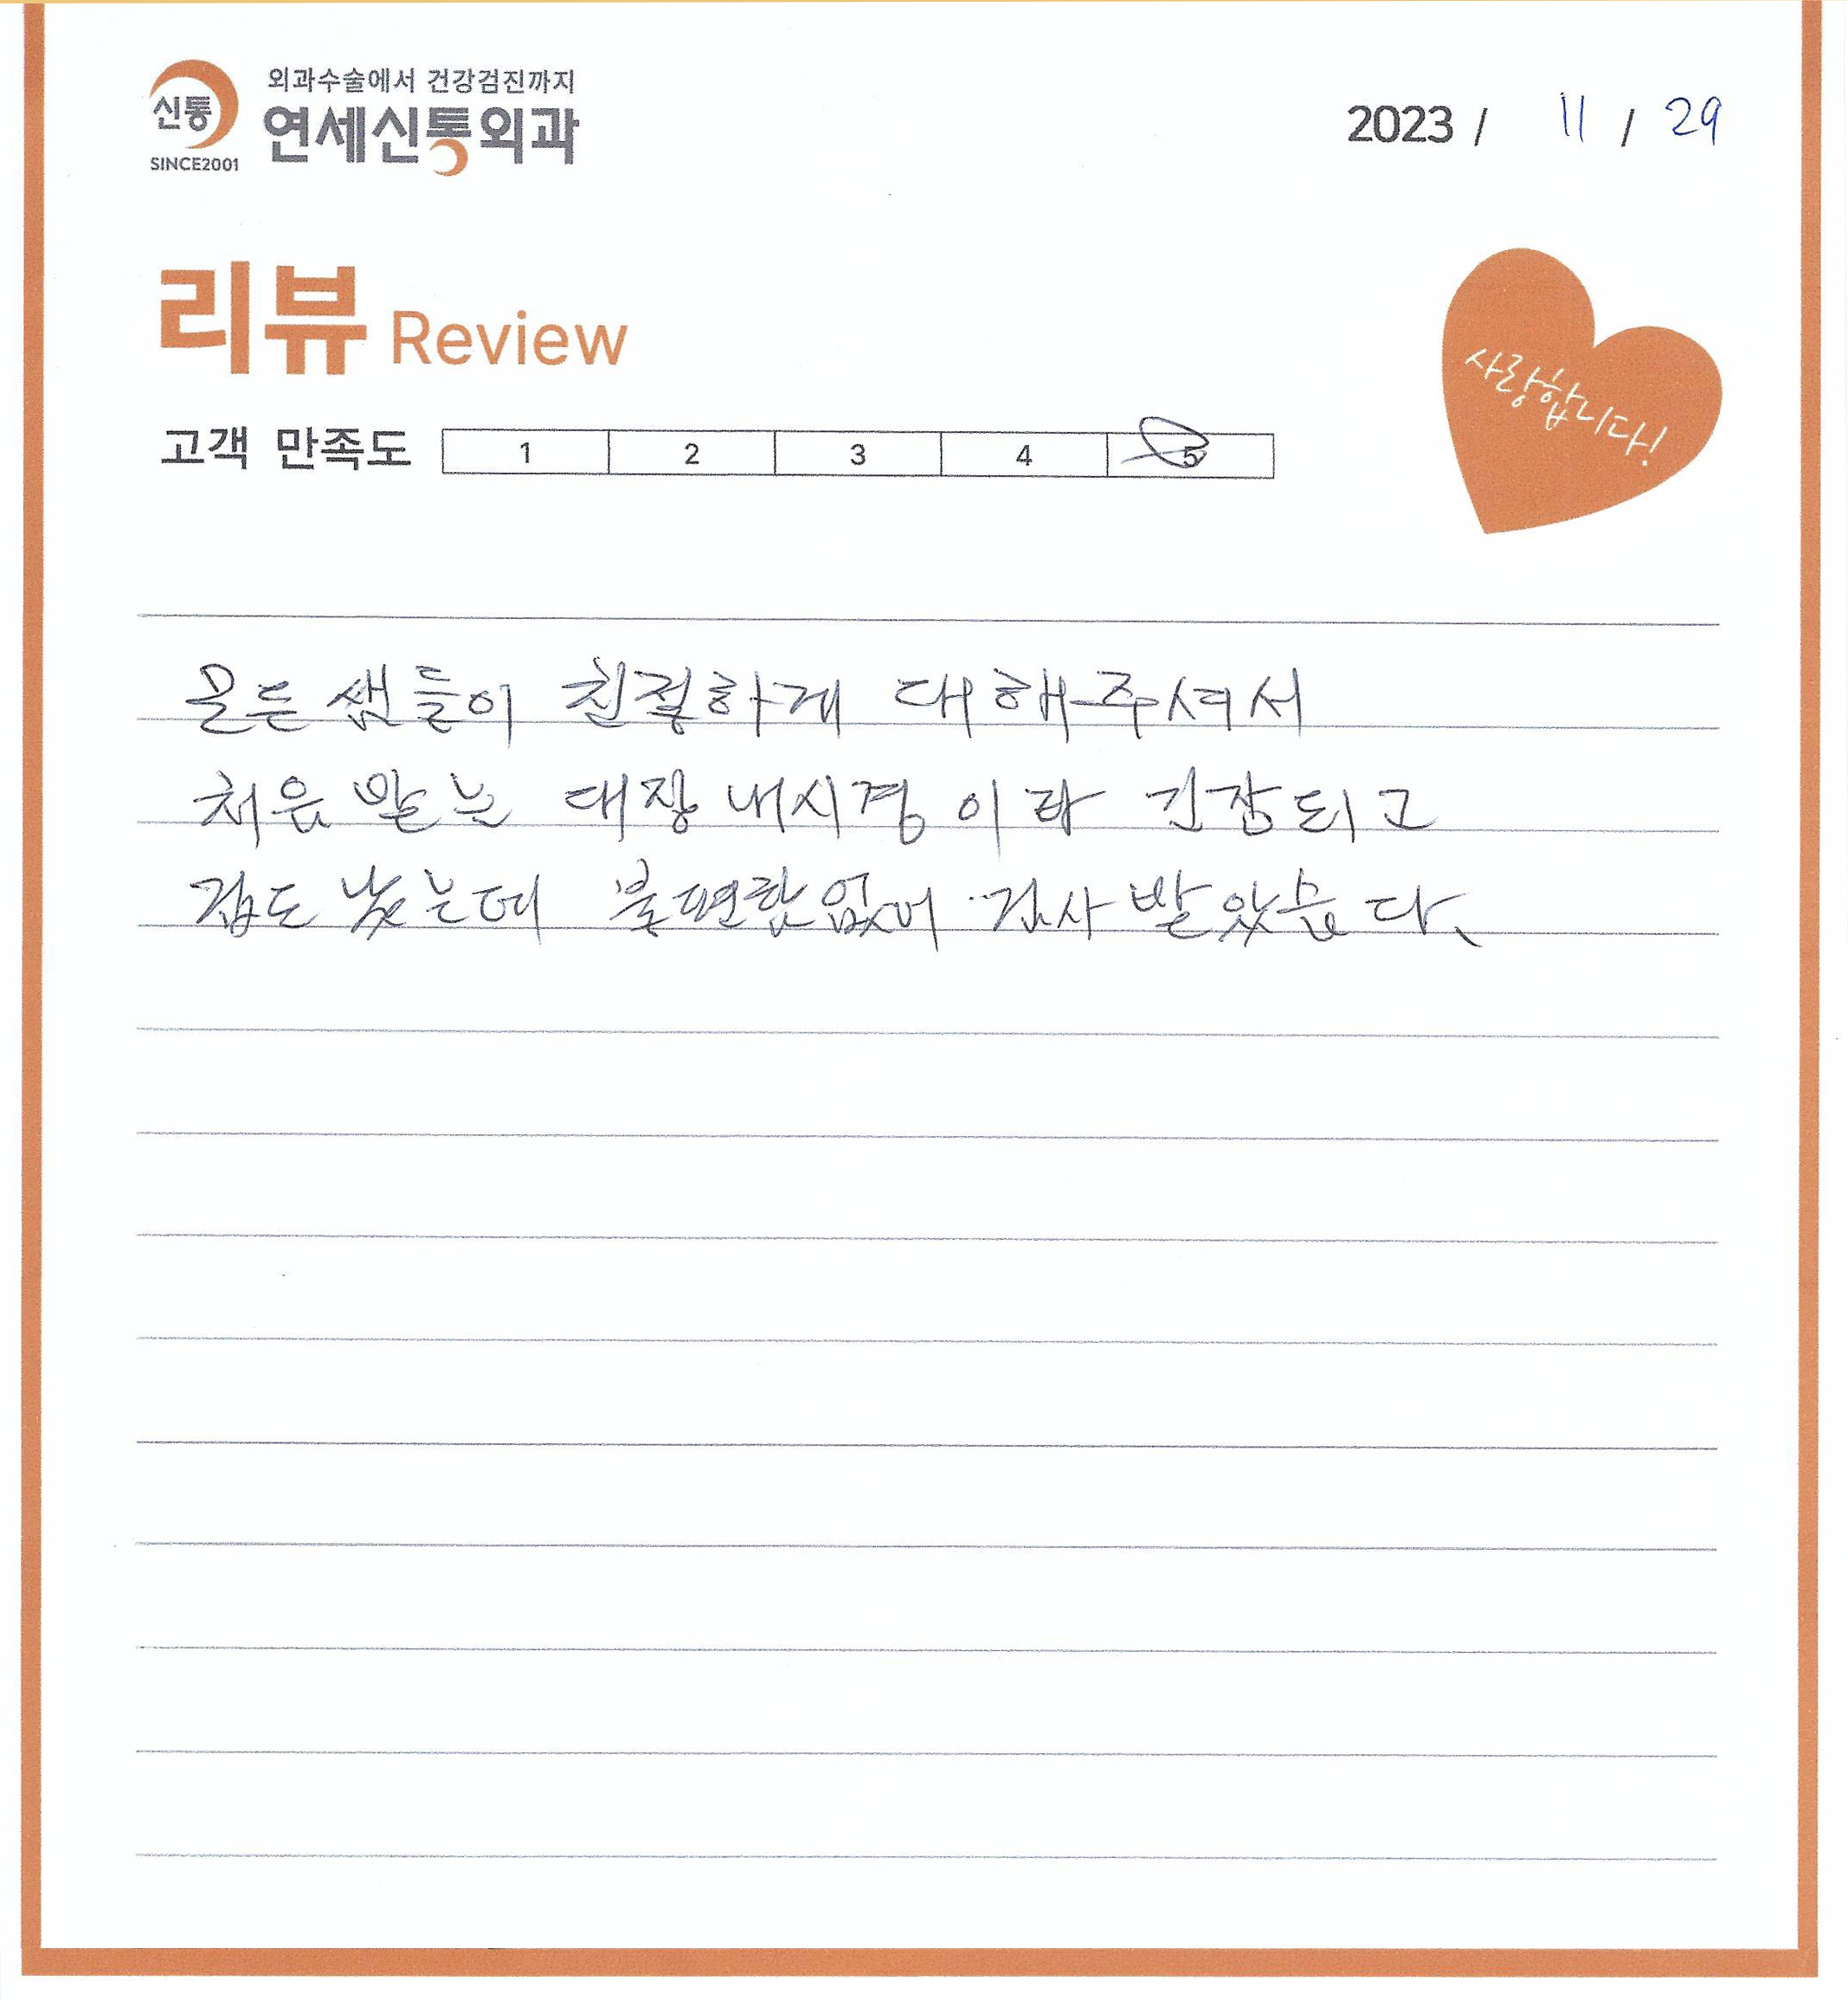 외과수술에서 건강검진까지
신통
연세신통외과
SINCE2001
2023 / 11 / 29
리뷰 Review
사랑합니다!
고객 만족도 1 2 3 4 5
모든 쌤들이 친절하게 대해주셔서
처음 받는 대장내시경이라 긴장되고
겁도 났는데 불편함없이 검사 받았습다.